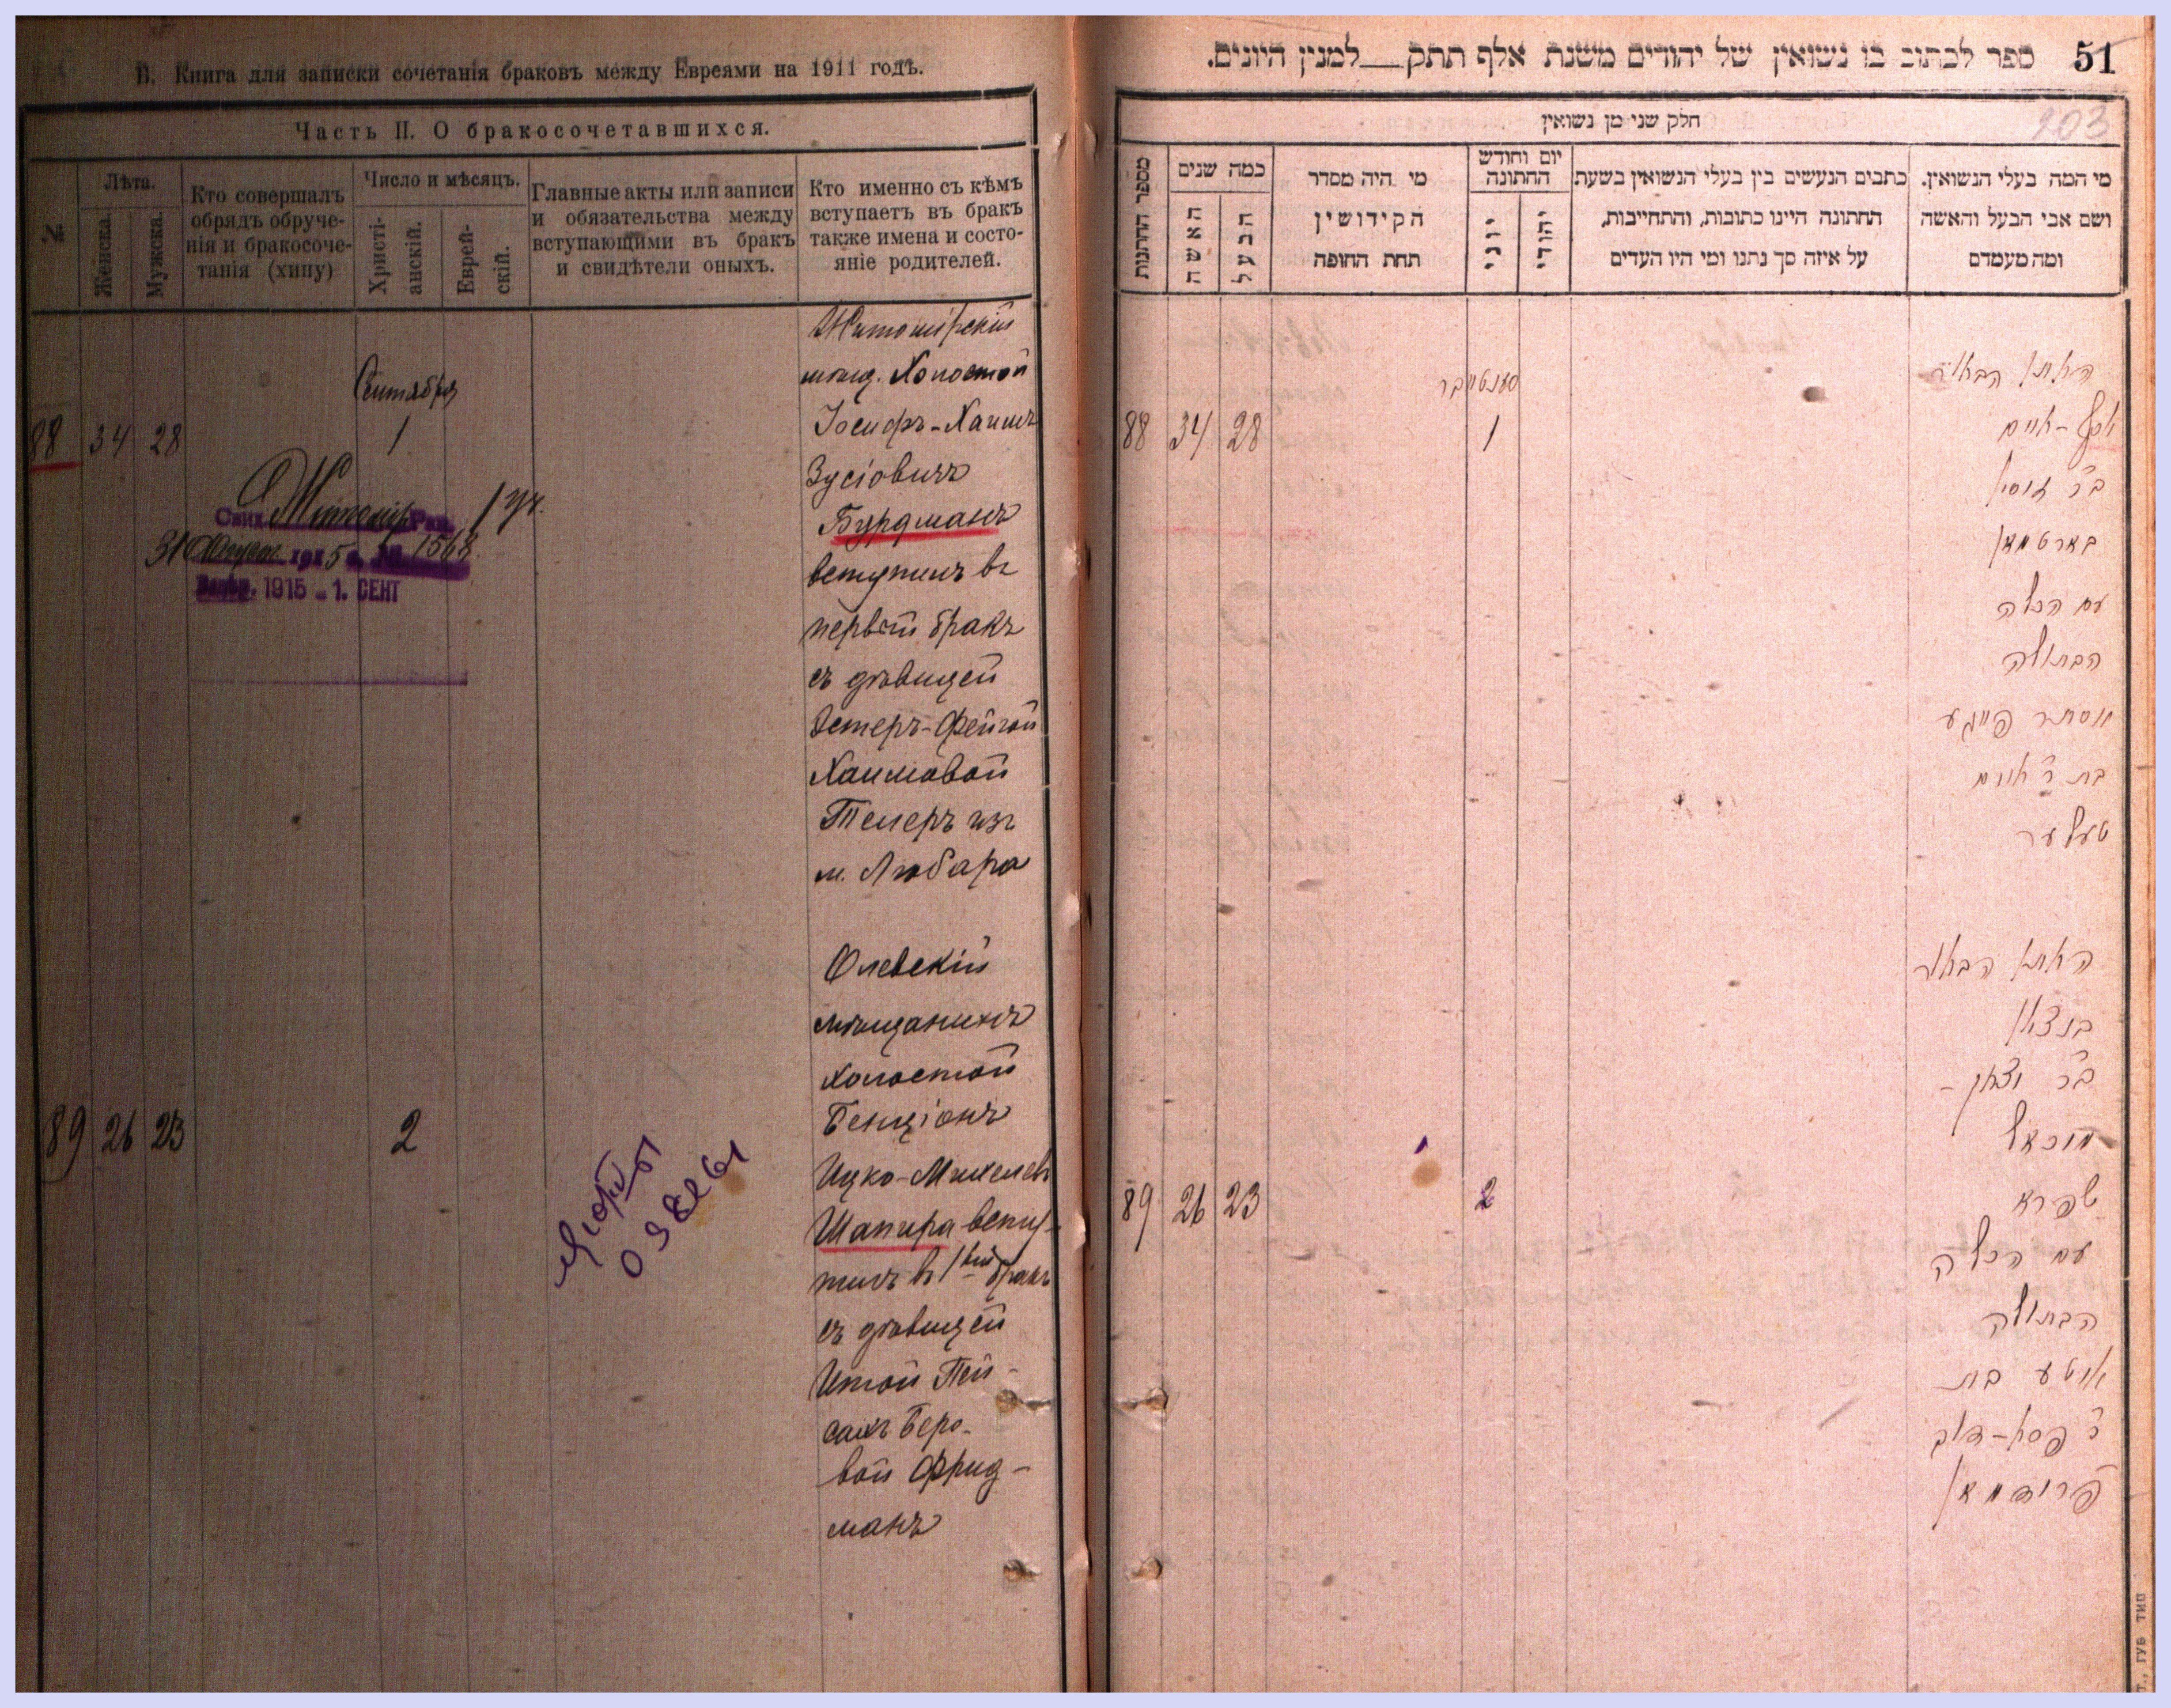 В. Книга для записки сочетанія браковъ между Евреями на 1911 годъ.
Часть II. О бракосочетавшихся.
№
Лѣта.
Женска.
Мужска.
Кто совершалъ
обрядъ обруче-
нія и бракосоче-
танія (хипу)
Число и мѣсяцъ.
Христі-
анскій.
Еврей-
скій.
Главные акты или записи
и обязательства между
вступающими въ бракъ
и свидѣтели оныхъ.
Кто именно съ кѣмъ
вступаетъ въ бракъ
также имена и состо-
яніе родителей.
Сентября
88 34 28 1
Житомирскій
мѣщ. Холостой
Іосифъ-Хаимъ
Зусіовичъ
Бурдманъ
вступилъ въ
первый бракъ
съ дѣвицей
Эстеръ-Фейгой
Хаимовой
Телеръ изъ
м. Любара
Житомир. Рав. 1 уч.
31 1915 1568
1915 - 1. СЕНТ
89 26 23 2
Олевскій
мѣщанинъ
холостой
Бенціонъ
Ицко-Михелевъ
Шапира всту-
пилъ въ 1вый бракъ
съ дѣвицей
Итой Пей-
сахъ Беро-
вой Фрид-
манъ
51
ספר לכתוב בו נשואין של יהודים משנת אלף תתק__למנין היונים.
203
חלק שני מן נשואין
מי המה בעלי הנשואין.
ושם אבי הבעל והאשה
ומה מעמדם
כתבים הנעשים בין בעלי הנשואין בשעת
החתונה היינו כתובות, והתחייבות,
על איזה סך נתנו ומי היו העדים
יום וחודש
החתונה
יהודי
יוני
מי היה מסדר
הקידושין
תחת החופה
כמה שנים
הבעל
האשה
מספר החתונות
סענטיabר
88 34 28 1
החתן הבחור
יוסף-חיים
ב״ר זוסיא
בורטמאן
עם הכלה
הבתולה
אסתר פייגע
בת ר׳ חיים
טעלער
89 26 23 2
החתן הבחור
בנציון
ב״ר יצחק-
מיכאל
שפירא
עם הכלה
הבתולה
איטע בת
ר׳ פסח-דוב
פרידמאן
ГУБ ТИП